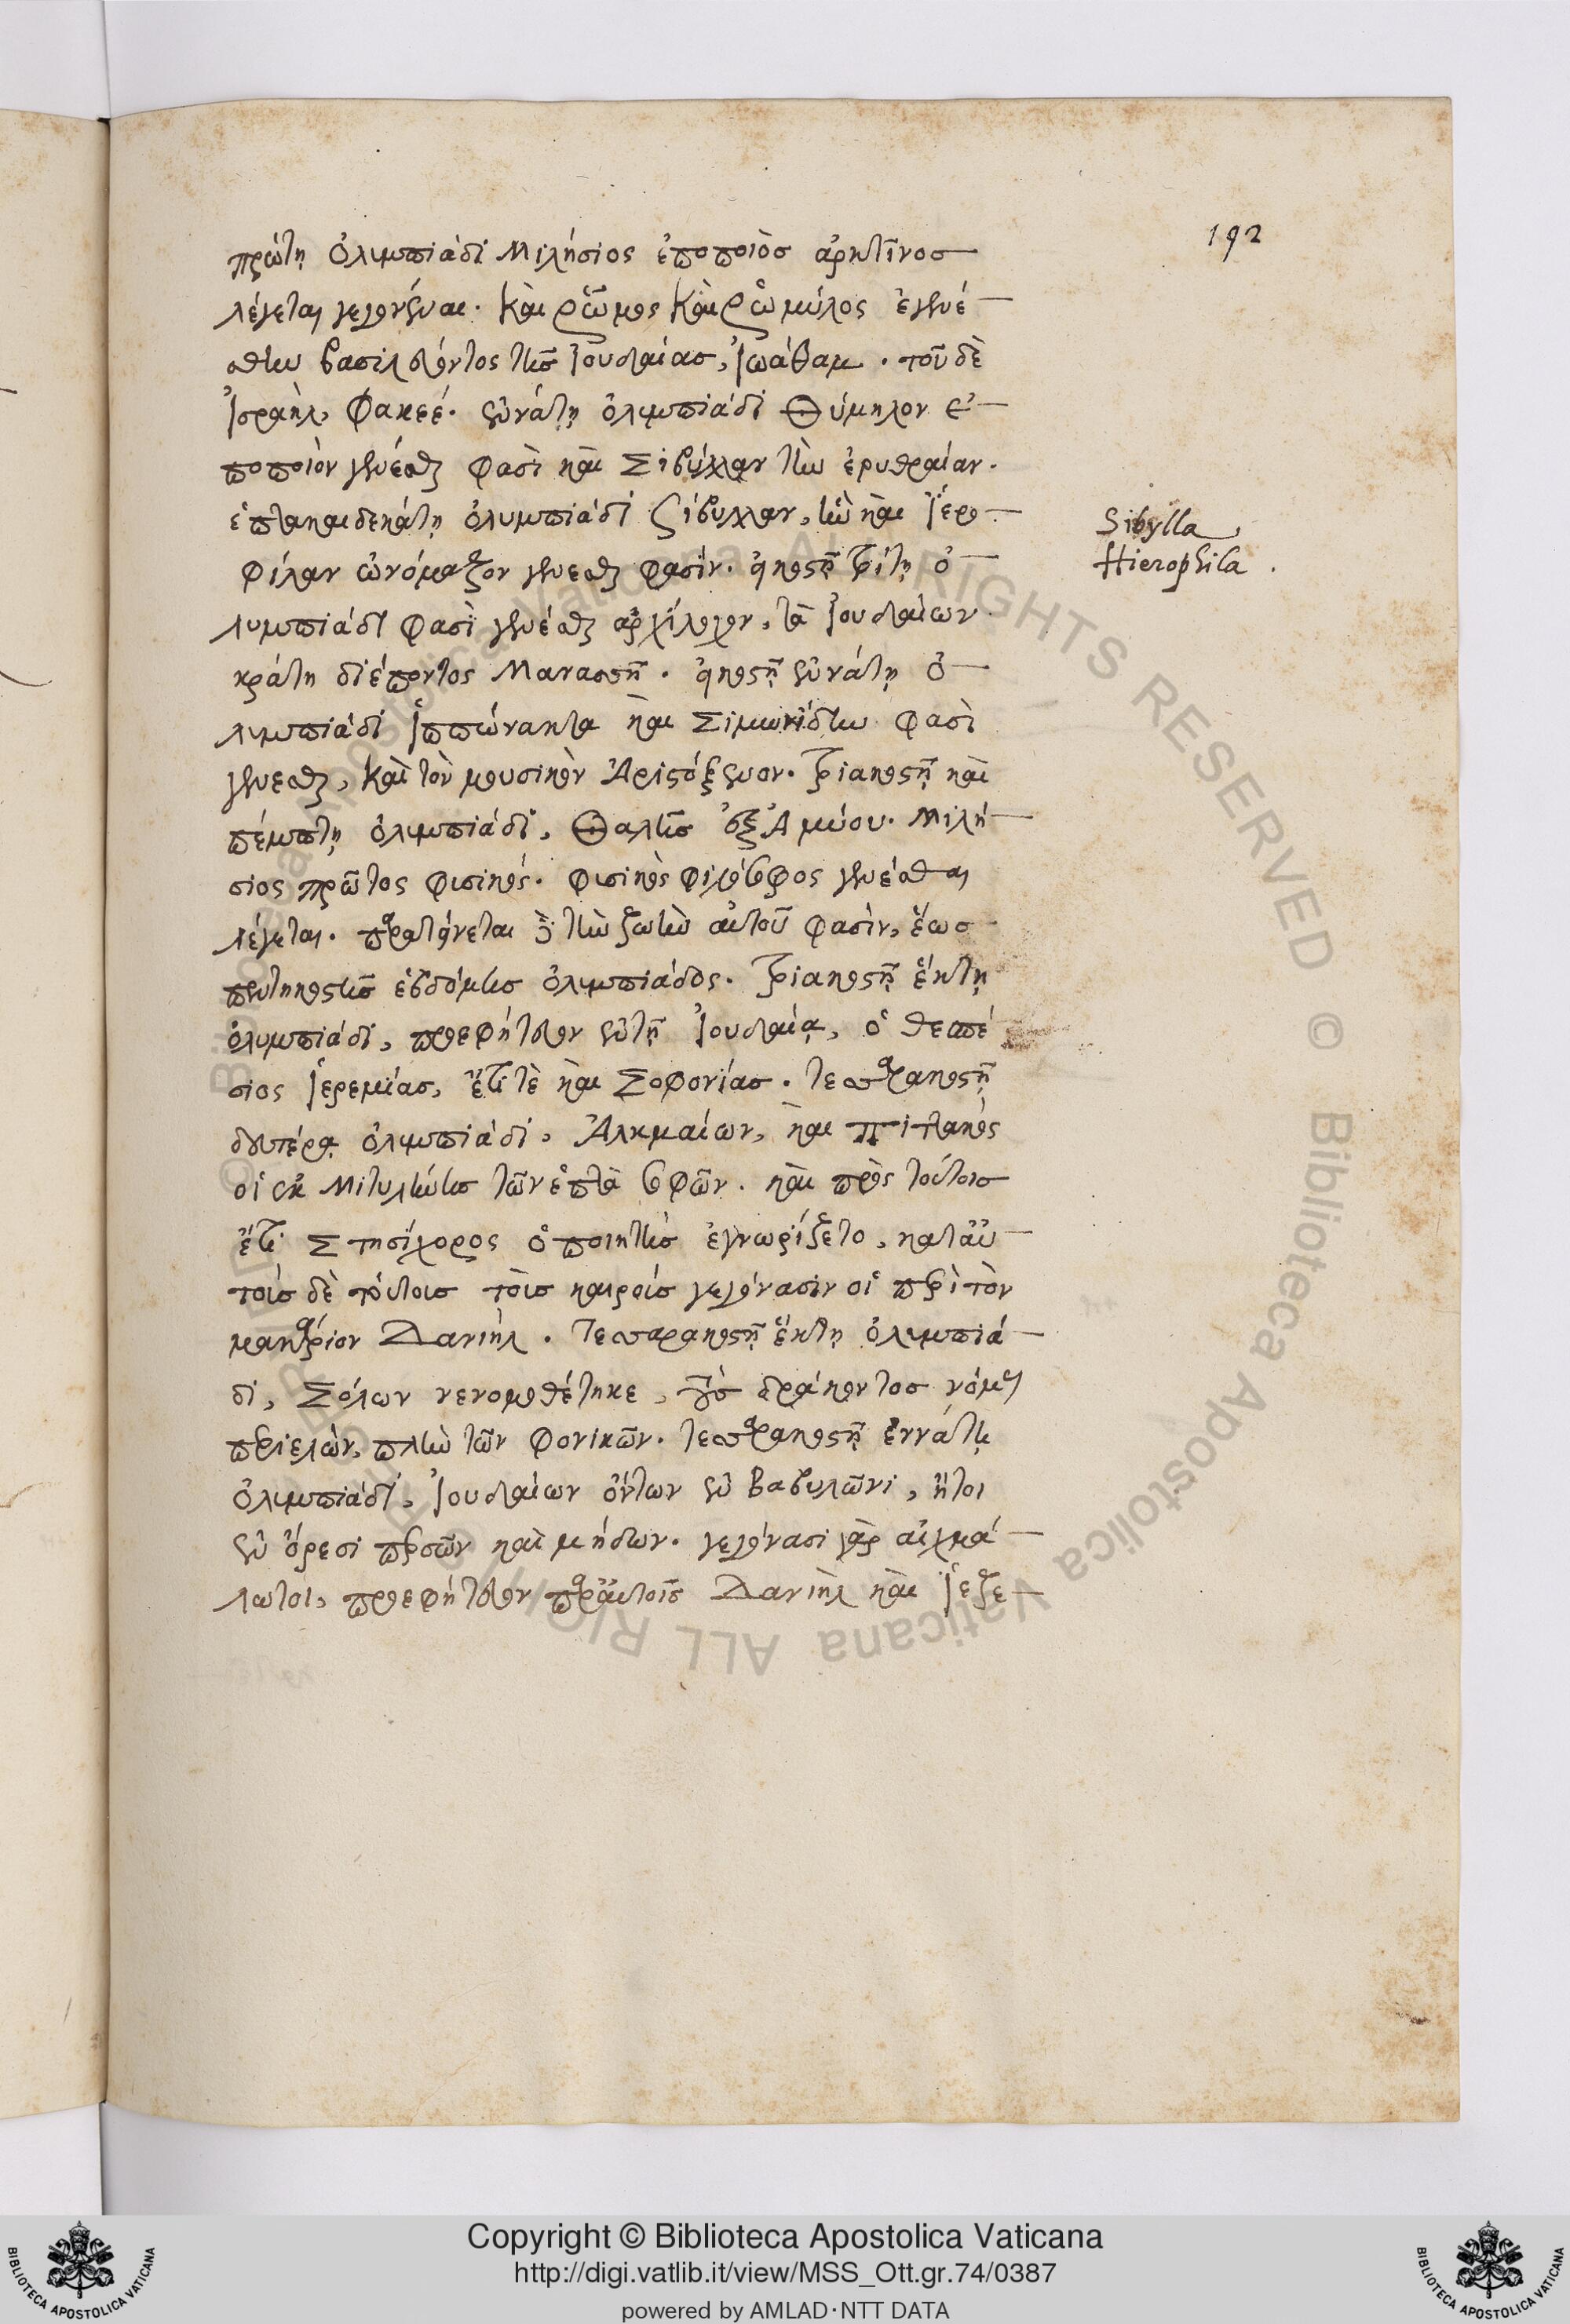 192
πρώτη ὀλυμπιάδι Μιλήσιος ἐποποιὸς ἀρκτῖνος
λέγεται γεγονέναι. Καὶ ῥῶμος Καὶ ῥωμύλος ἐγενέ-
σθην βασιλεύοντος τῆς Ἰουδαίας, Ἰωάθαμ. τοῦ δὲ
Ἰσραὴλ, Φακεέ. ἐνάτη ὀλυμπιάδι Θύμηλον ἐ-
ποποιὸν γενέσθαι φασὶ καὶ Σίβυλλαν τὴν ἐρυθραίαν.
ἑπτακαιδεκάτη ὀλυμπιάδι Σίβυλλαν, ἣν καὶ Ἱερο-
φίλαν ὠνόμαζον γενεσθαι φασίν. εἰκοστῇ τρίτη ὀ-
λυμπιάδι φασὶ γενέσθαι ἀρχίλοχον, τὰ Ἰουδαίων
κράτη διέποντος Μανασσῆ. εἰκοστῇ ἐνάτη ὀ-
λυμπιάδι Ἱππώνακτα καὶ Σιμωνίδην φασὶ
γενεσθαι, Καὶ τὸν μουσικὸν Ἀριστόξενον. τριακοστῇ καὶ
πέμπτῃ ὀλυμπιάδι, Θαλῆς ἐξ Ἀμύου. Μιλή-
σιος πρῶτος φυσικός. φυσικὸς φιλόσοφος γενέσθαι
λέγεται. παρατείνεται δὲ τὴν ζωὴν αὐτοῦ φασὶν, ἕως
πεντηκοστῆς ἑβδόμης ὀλυμπιάδος. τριακοστῇ ἕκτῃ
ὀλυμπιάδι, προεφήτευον ἐν τῇ Ἰουδαίᾳ, ὁ θεσπέ
σιος Ἱερεμίας, ἔτι τὲ καὶ Σοφονίας. τεσσαρακοστῇ
δευτέρᾳ ὀλυμπιάδι, Ἀλκμαίων, καὶ Πιττακός
οἱ ἐκ Μιτυλήνης τῶν ἑπτὰ σοφῶν. καὶ πρὸς τούτοις
ἔτι Στησίχορος ὁ ποιητὴς ἐγνωρίζετο, κατ' αὐ-
τοὺς δὲ τούτοις τοῖς καιροῖς γεγόνασιν οἱ περὶ τὸν
μακάριον Δανιὴλ. τεσσαρακοστῇ ἕκτη ὀλυμπιά-
δι, Σόλων νενομοθέτηκε, τοὺς δράκοντος νόμους
περιελὼν, πλὴν τῶν φονικῶν. τεσσαρακοστῇ ἐννάτῃ
ὀλυμπιάδι, Ἰουδαίων ὄντων ἐν βαβυλῶνι, ἤτοι
ἐν ὄρεσι περσῶν καὶ μήδων. γεγόνασι γὰρ αἰχμά-
λωτοι, προεφήτευον παρ' αὐτοῖς Δανιὴλ καὶ Ἰεζε-
Sibylla
Hierophila.
© Biblioteca Apostolica Vaticana ALL RIGHTS RESERVED © Biblioteca Apostolica Vaticana ALL RIGHTS RESERVED
BIBLIOTECA APOSTOLICA VATICANA
Copyright © Biblioteca Apostolica Vaticana
http://digi.vatlib.it/view/MSS_Ott.gr.74/0387
powered by AMLAD·NTT DATA
BIBLIOTECA APOSTOLICA VATICANA